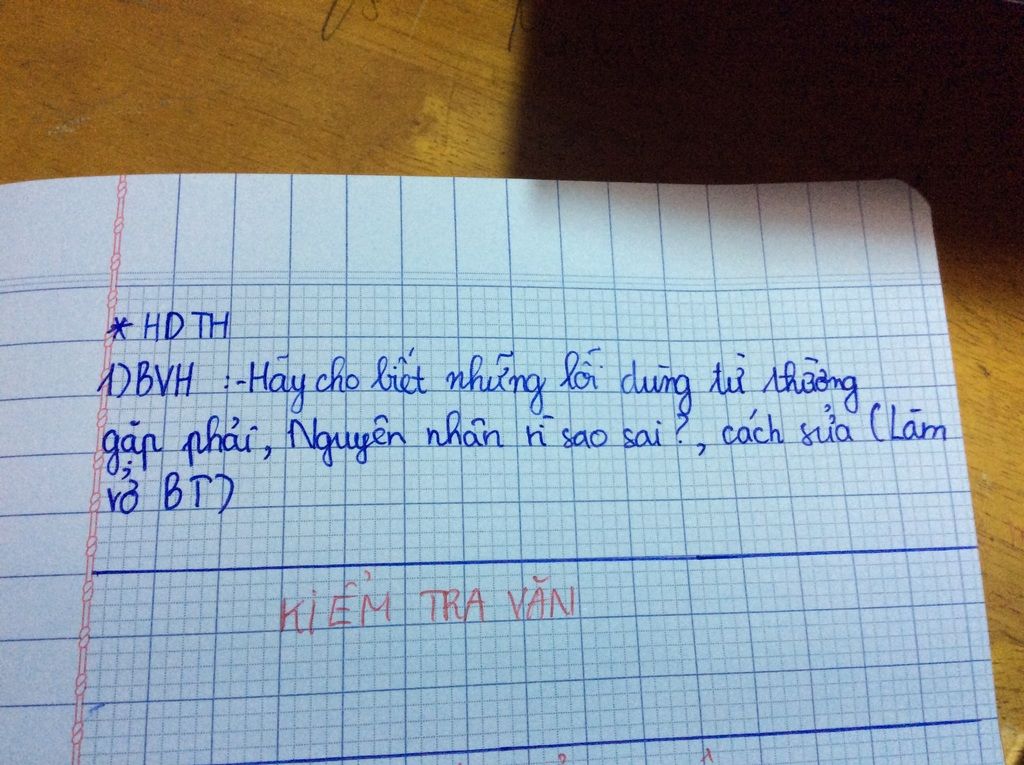 * HDTH
1) BVH : - Hãy cho biết những lỗi dùng từ thường
gặp phải, Nguyên nhân vì sao sai?, cách sửa (Làm
vở BT)
KIỂM TRA VĂN